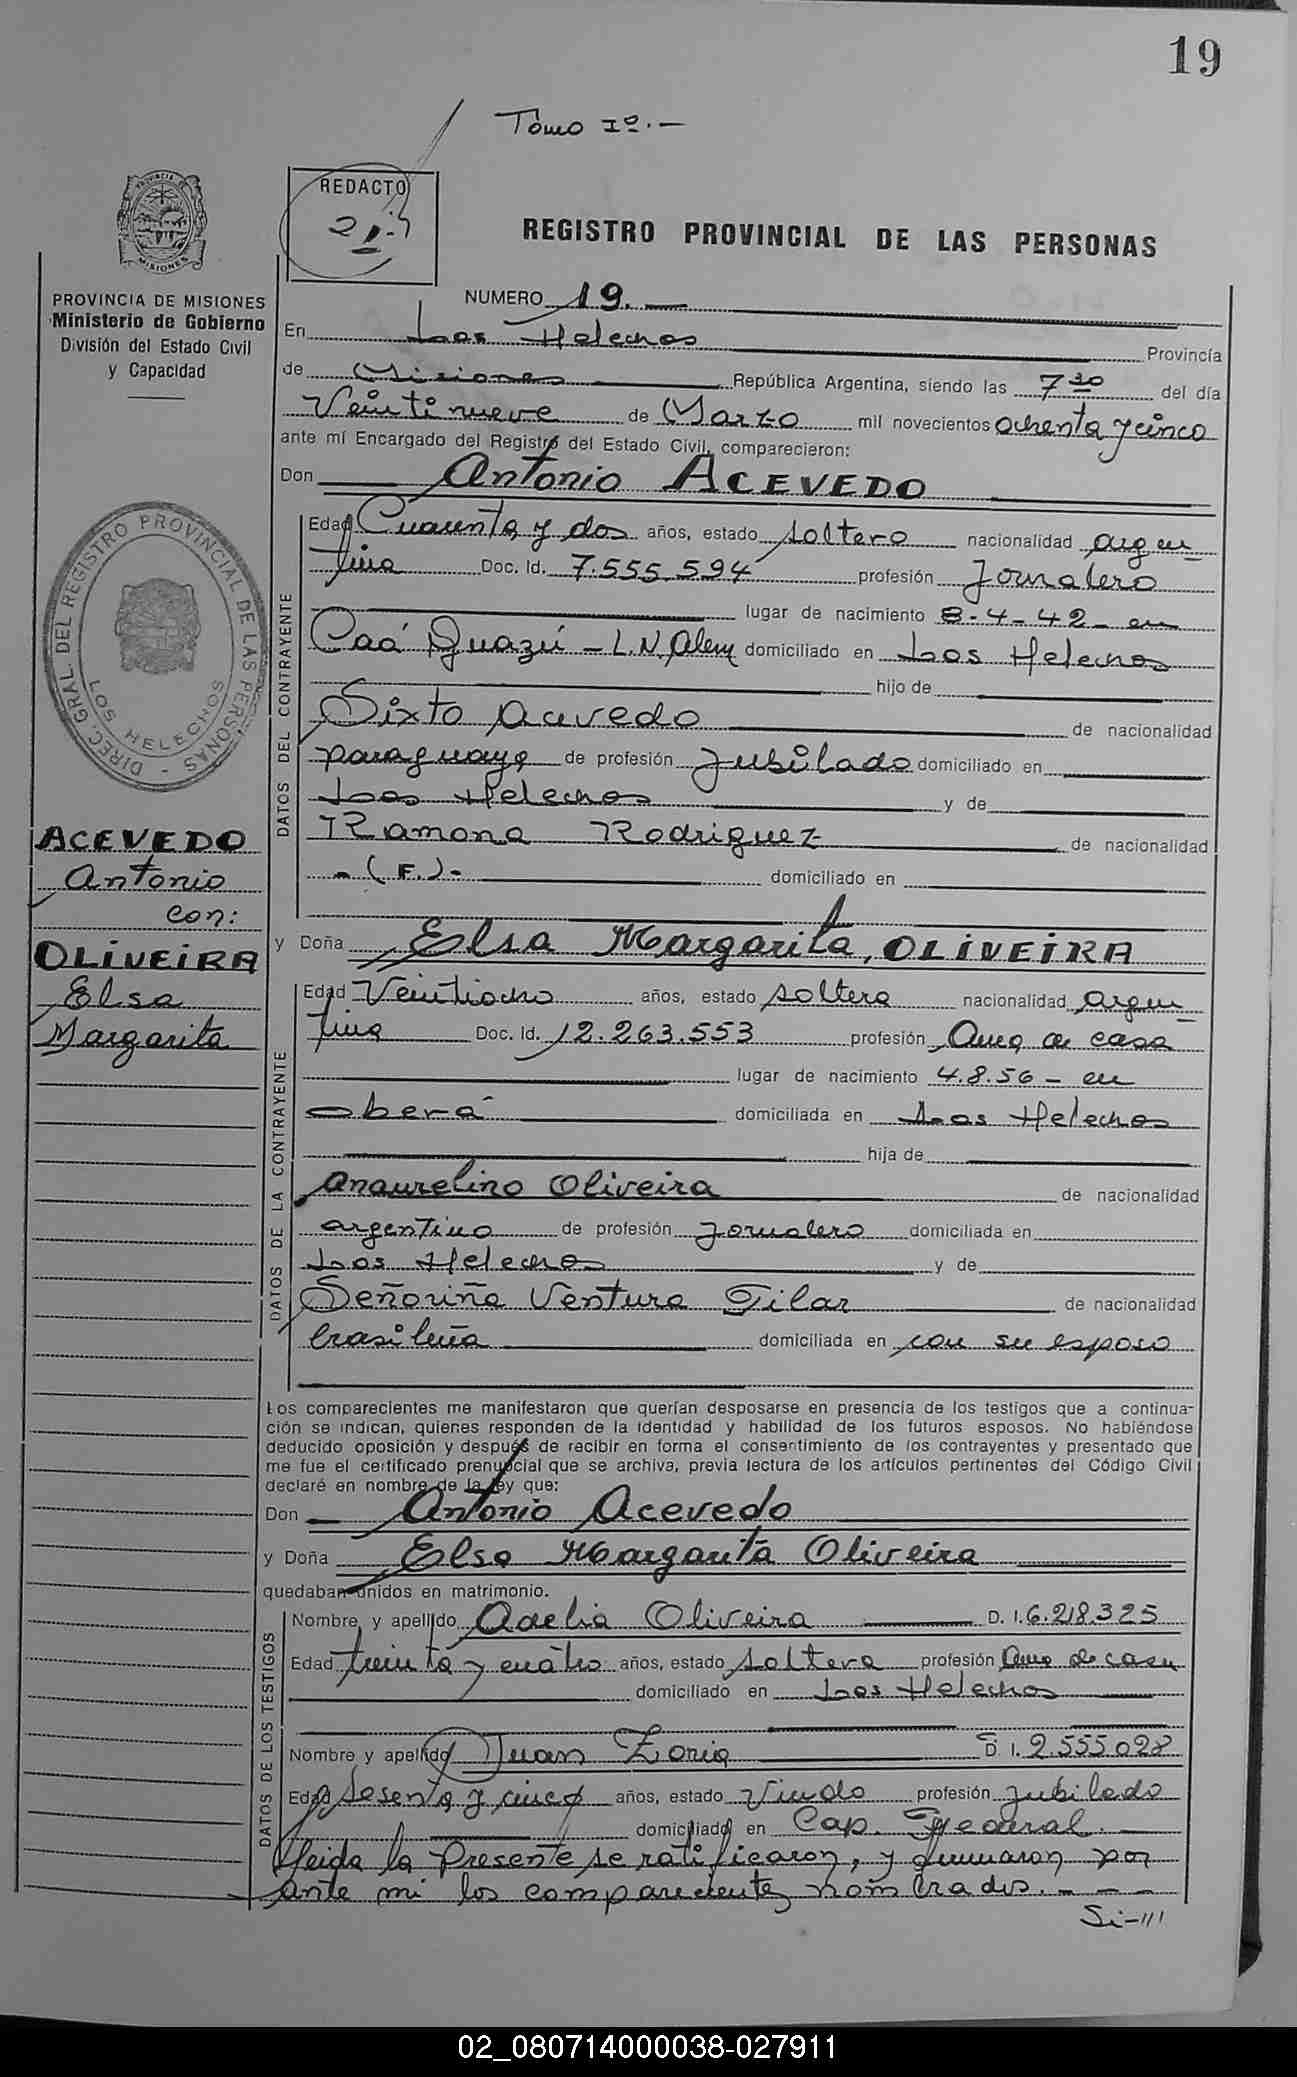 19
Tomo Iº.-
REDACTO
REGISTRO PROVINCIAL DE LAS PERSONAS
PROVINCIA DE MISIONES
MISIONES
PROVINCIA DE MISIONES
Ministerio de Gobierno
División del Estado Civil
y Capacidad
DIREC. GRAL. DEL REGISTRO PROVINCIAL DE LAS PERSONAS -
LOS HELECHOS
ACEVEDO
Antonio
con:
OLIVEIRA
Elsa
Margarita
NUMERO 19.
En Los Helechos Provincia
de Misiones República Argentina, siendo las 7 30 del día
Veintinueve de Marzo mil novecientos ochenta y cinco
ante mí Encargado del Registro del Estado Civil, comparecieron:
Don Antonio ACEVEDO
DATOS DEL CONTRAYENTE
Edad Cuarenta y dos años, estado soltero nacionalidad argen
tina Doc. Id. 7.555.594 profesión Jornalero
lugar de nacimiento 8-4-42- en
Caá Guazú - L.N. Alem domiciliado en Los Helechos
hijo de
Sixto Acevedo de nacionalidad
paraguayo de profesión Jubilado domiciliado en
Los Helechos y de
Ramona Rodriguez de nacionalidad
-(F.)- domiciliado en
y Doña Elsa Margarita, OLIVEIRA
DATOS DE LA CONTRAYENTE
Edad Veintiocho años, estado soltera nacionalidad argen
tina Doc. Id. 12.263.553 profesión Ama de casa
lugar de nacimiento 4.8.56 - en
Oberá domiciliada en Los Helechos
hija de
Anaurelino Oliveira de nacionalidad
argentino de profesión Jornalero domiciliada en
Los Helechos y de
Señoriña Ventura Pilar de nacionalidad
brasileña domiciliada en con su esposo
Los comparecientes me manifestaron que querían desposarse en presencia de los testigos que a continua-
ción se indican, quienes responden de la identidad y habilidad de los futuros esposos. No habiéndose
deducido oposición y después de recibir en forma el consentimiento de los contrayentes y presentado que
me fue el certificado prenupcial que se archiva, previa lectura de los artículos pertinentes del Código Civil
declaré en nombre de la ley que:
Don Antonio Acevedo
y Doña Elsa Margarita Oliveira
quedaban unidos en matrimonio.
DATOS DE LOS TESTIGOS
Nombre y apellido Adelia Oliveira D. I. 6.218.325
Edad treinta y cuatro años, estado soltera profesión Ama de casa
domiciliado en Los Helechos
Nombre y apellido Juan Zoria D. I. 2.555.028
Edad sesenta y cinco años, estado Viudo profesión Jubilado
domiciliado en Cap. Federal.
Leida la presente se ratificaron, y firmaron por
ante mi los comparecientes nombrados. - - -
Si-///
02_080714000038-027911